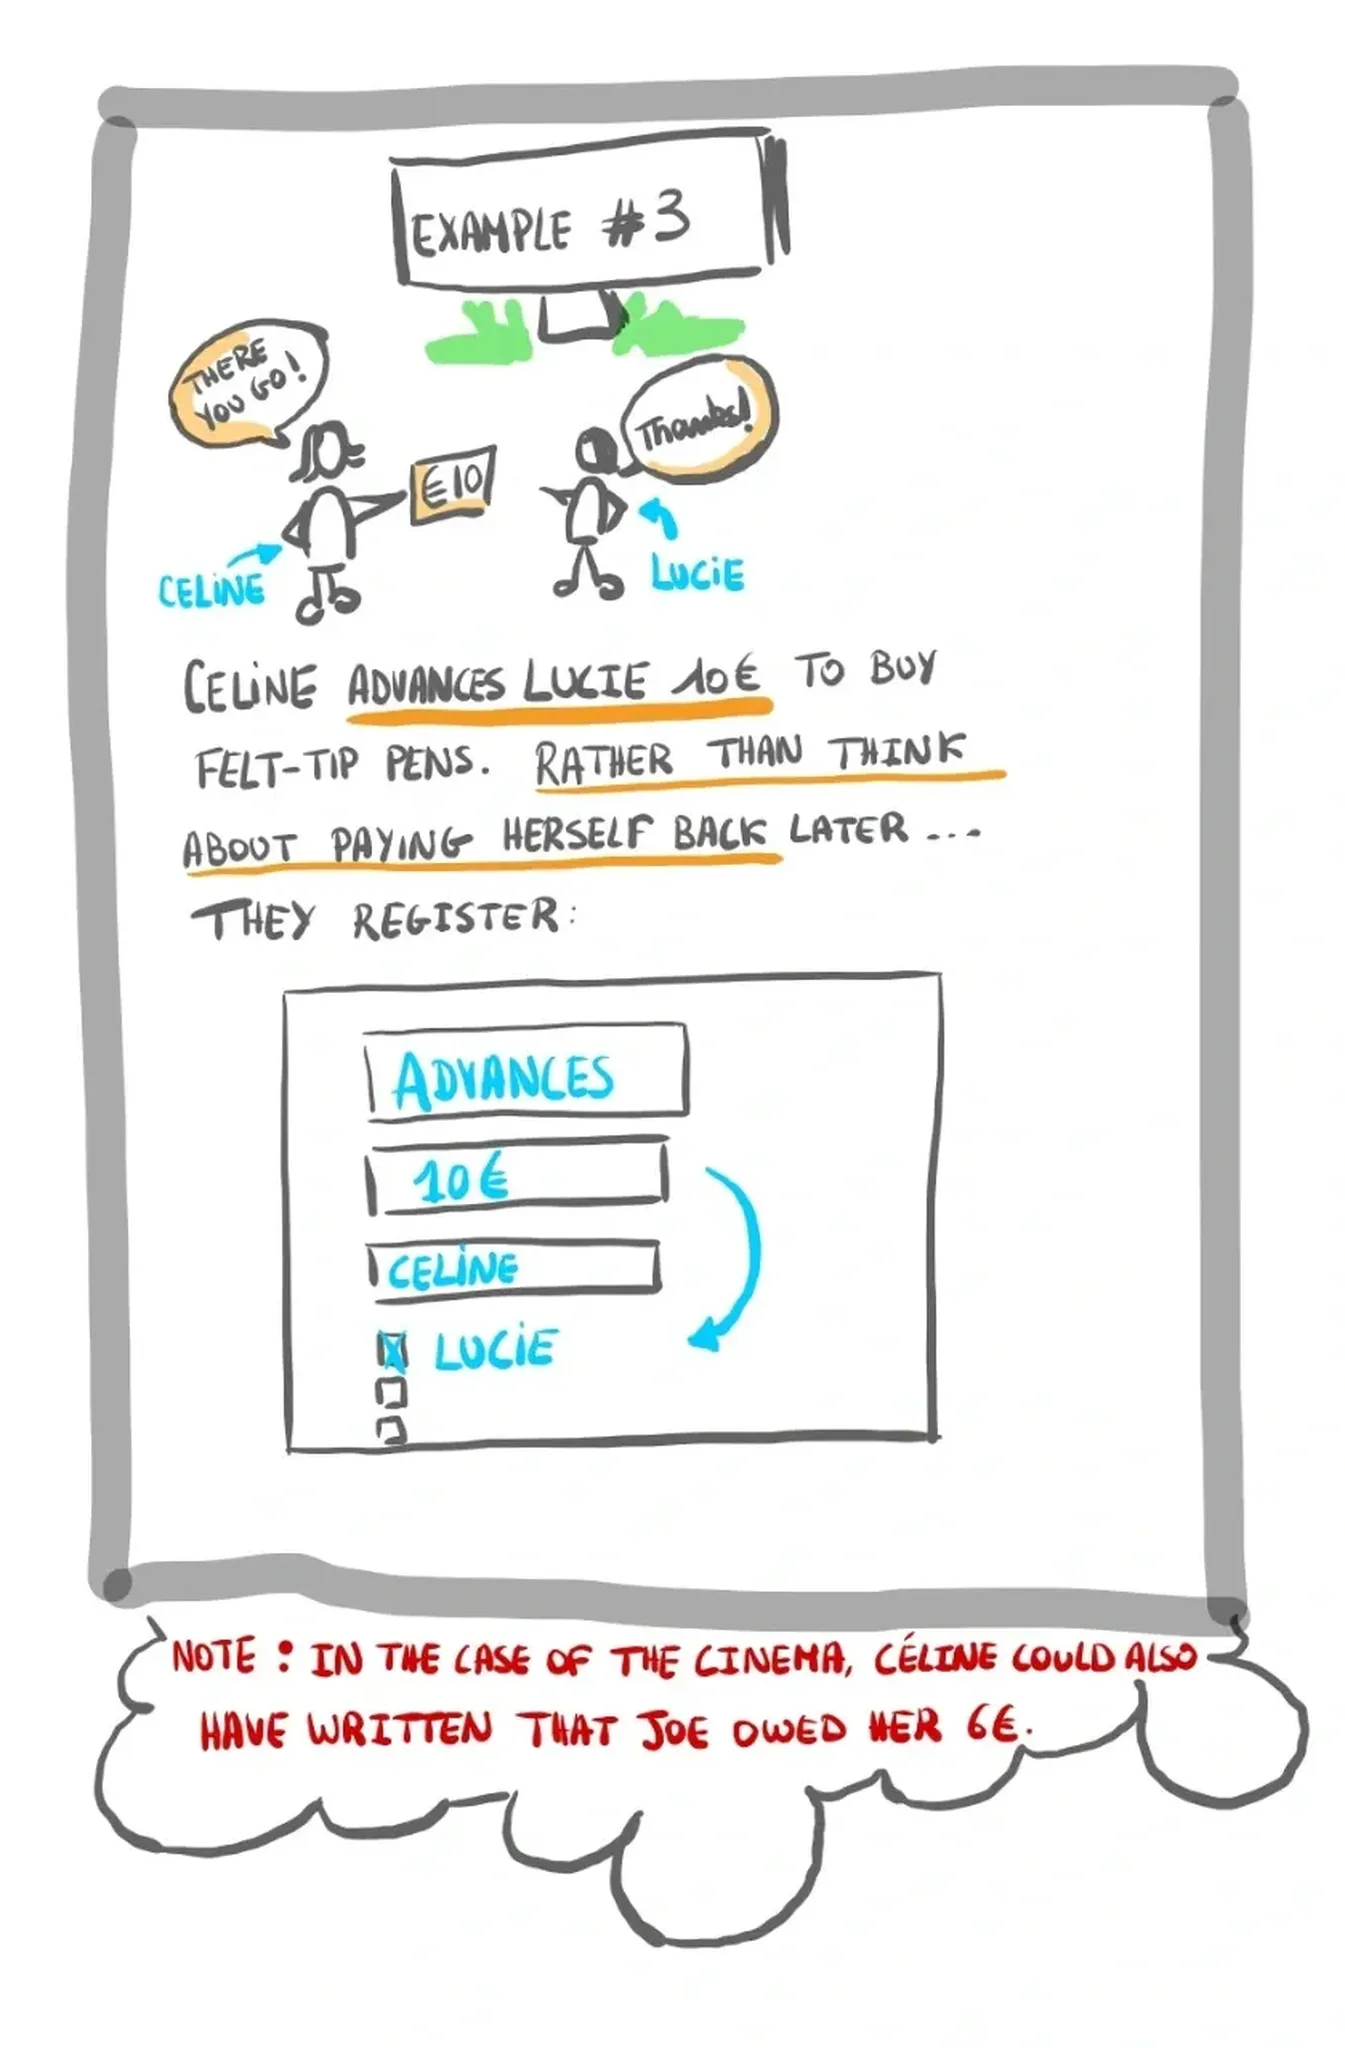 EXAMPLE #3
THERE
YOU GO!
Thanks!
€10
CELINE
LUCIE
CELINE ADVANCES LUCIE 10€ TO BUY
FELT-TIP PENS. RATHER THAN THINK
ABOUT PAYING HERSELF BACK LATER ...
THEY REGISTER:
ADVANCES
10€
CELINE
LUCIE
NOTE : IN THE CASE OF THE CINEMA, CÉLINE COULD ALSO
HAVE WRITTEN THAT JOE OWED HER 6€.